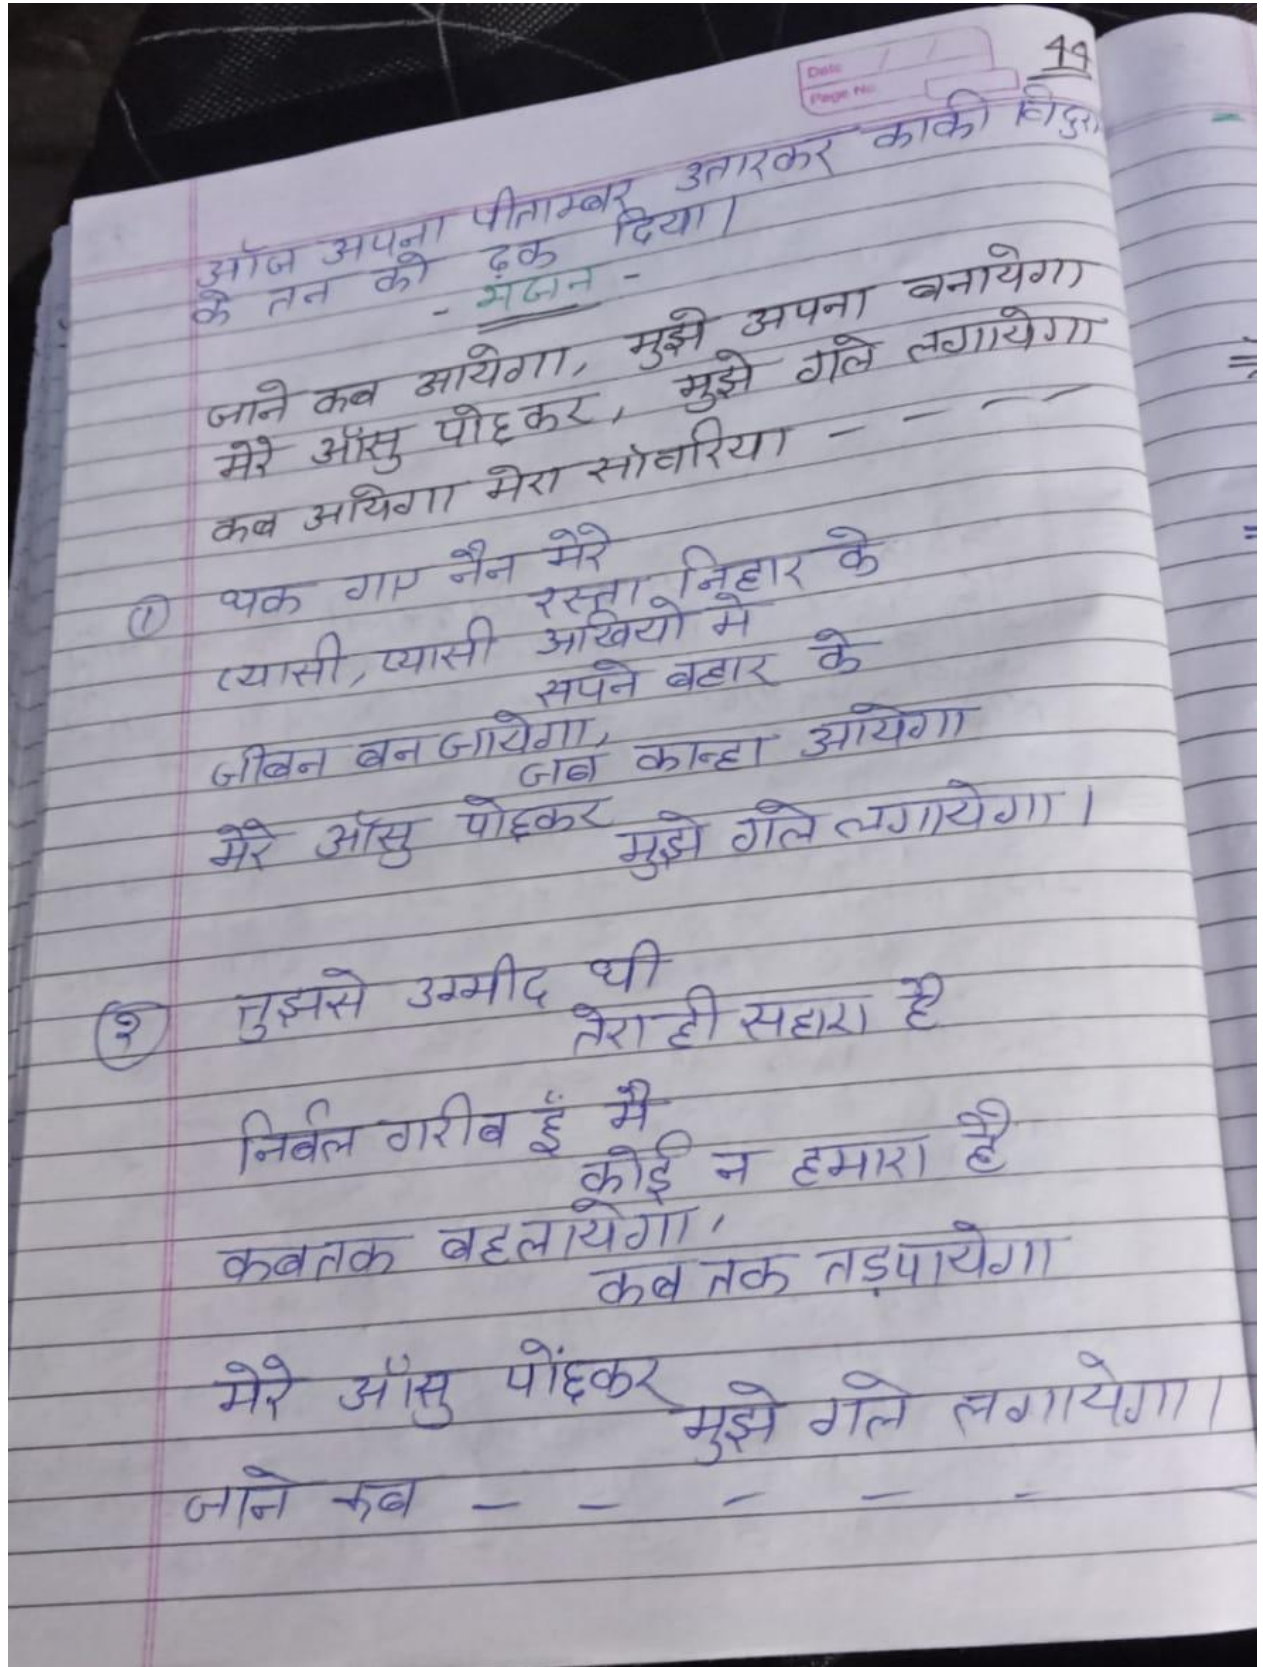 Date / /
Page No.
44
ऑज अपना पीताम्बर उतारकर काकी विदुरा
के तन को ढ़क दिया।
- भजन -
जाने कब आयेगा, मुझे अपना बनायेगा
मेरे ऑसु पोछकर, मुझे गले लगायेगा
कब आयेगा मेरा साँवरिया - - - -
① थक गए नैन मेरे
रस्ता निहार के
प्यासी, प्यासी अखियो मे
सपने बहार के
जीबन बन जायेगा,
जब कान्हा आयेगा
मेरे ऑसु पोछकर
मुझे गले लगायेगा।
② तुझसे उम्मीद थी
तेरा ही सहारा है
निर्बल गरीब हूँ मै
कोई न हमारा है
कबतक बहलायेगा,
कब तक तड़पायेगा
मेरे ऑसु पोंछकर
मुझे गले लगायेगा।
जाने कब - - - - -